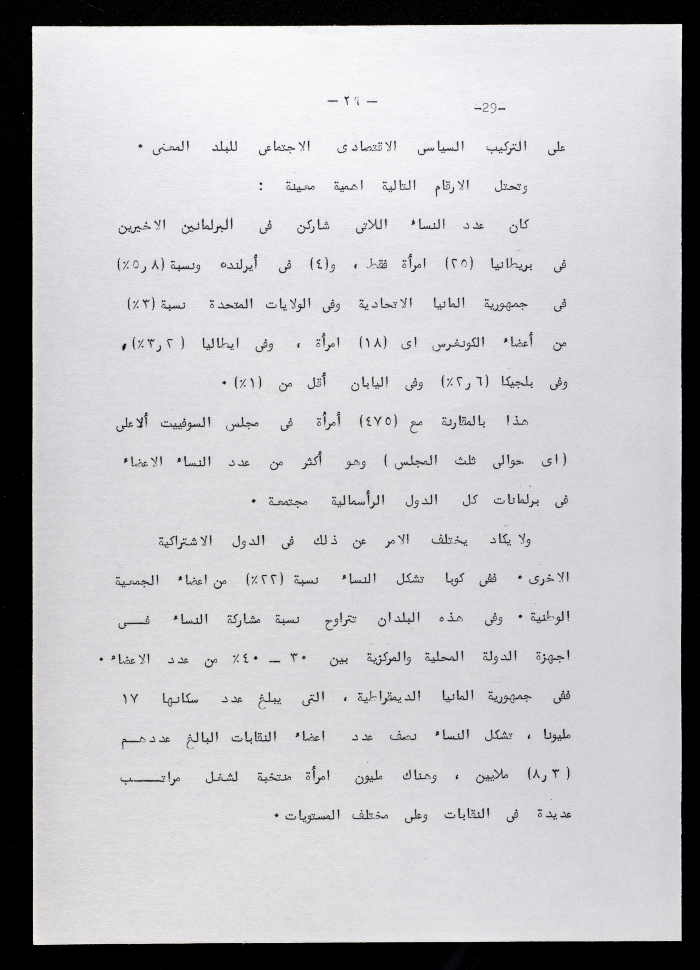 — ٢٩ —
-29-
على التركيب السياسى الاقتصادى الاجتماعى للبلد المعنى ٠
وتحتل الارقام التالية اهمية معينة :
كان عدد النساء اللاتى شاركن فى البرلمانين الاخيرين
فى بريطانيا (٢٥) امرأة فقط ، و(٤) فى أيرلنده ونسبة (٨ر٥٪)
فى جمهورية المانيا الاتحادية وفى الولايات المتحدة نسبة (٣٪)
من أعضاء الكونغرس اى (١٨) امرأة ، وفى ايطاليا (٢ر٣٪)،
وفى بلجيكا (٦ر٢٪) وفى اليابان أقل من (١٪) ٠
هذا بالمقارنة مع (٤٧٥) أمرأة فى مجلس السوفييت ألاعلى
(اى حوالى ثلث المجلس) وهو أكثر من عدد النساء الاعضاء
فى برلمانات كل الدول الرأسمالية مجتمعة ٠
ولا يكاد يختلف الامر عن ذلك فى الدول الاشتراكية
الاخرى ٠ ففى كوبا تشكل النساء نسبة (٢٢٪) من اعضاء الجمعية
الوطنية ٠ وفى هذه البلدان تتراوح نسبة مشاركة النساء فــى
اجهزة الدولة المحلية والمركزية بين ٣٠ — ٤٠٪ من عدد الاعضاء ٠
ففى جمهورية المانيا الديمقراطية ، التى يبلغ عدد سكانها ١٧
مليونا ، تشكل النساء نصف عدد اعضاء النقابات البالغ عددهــم
(٣ر٨) ملايين ، وهناك مليون امرأة منتخبة لشغل مراتـــب
عديدة فى النقابات وعلى مختلف المستويات ٠